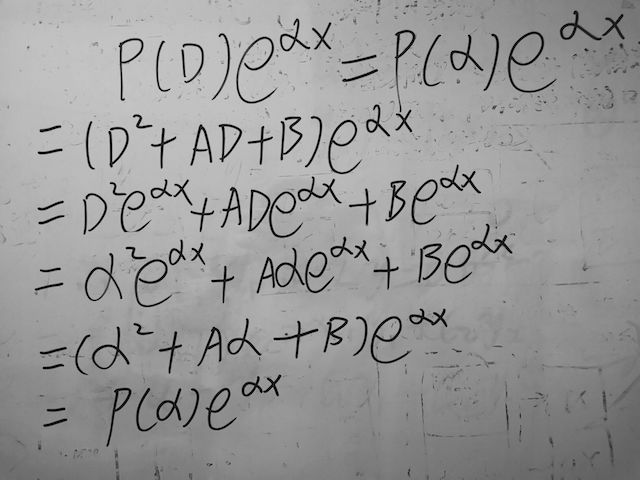 P(D)e^{αx} = P(α)e^{αx}
= (D² + AD + B)e^{αx}
= D²e^{αx} + ADe^{αx} + Be^{αx}
= α²e^{αx} + Aαe^{αx} + Be^{αx}
= (α² + Aα + B)e^{αx}
= P(α)e^{αx}